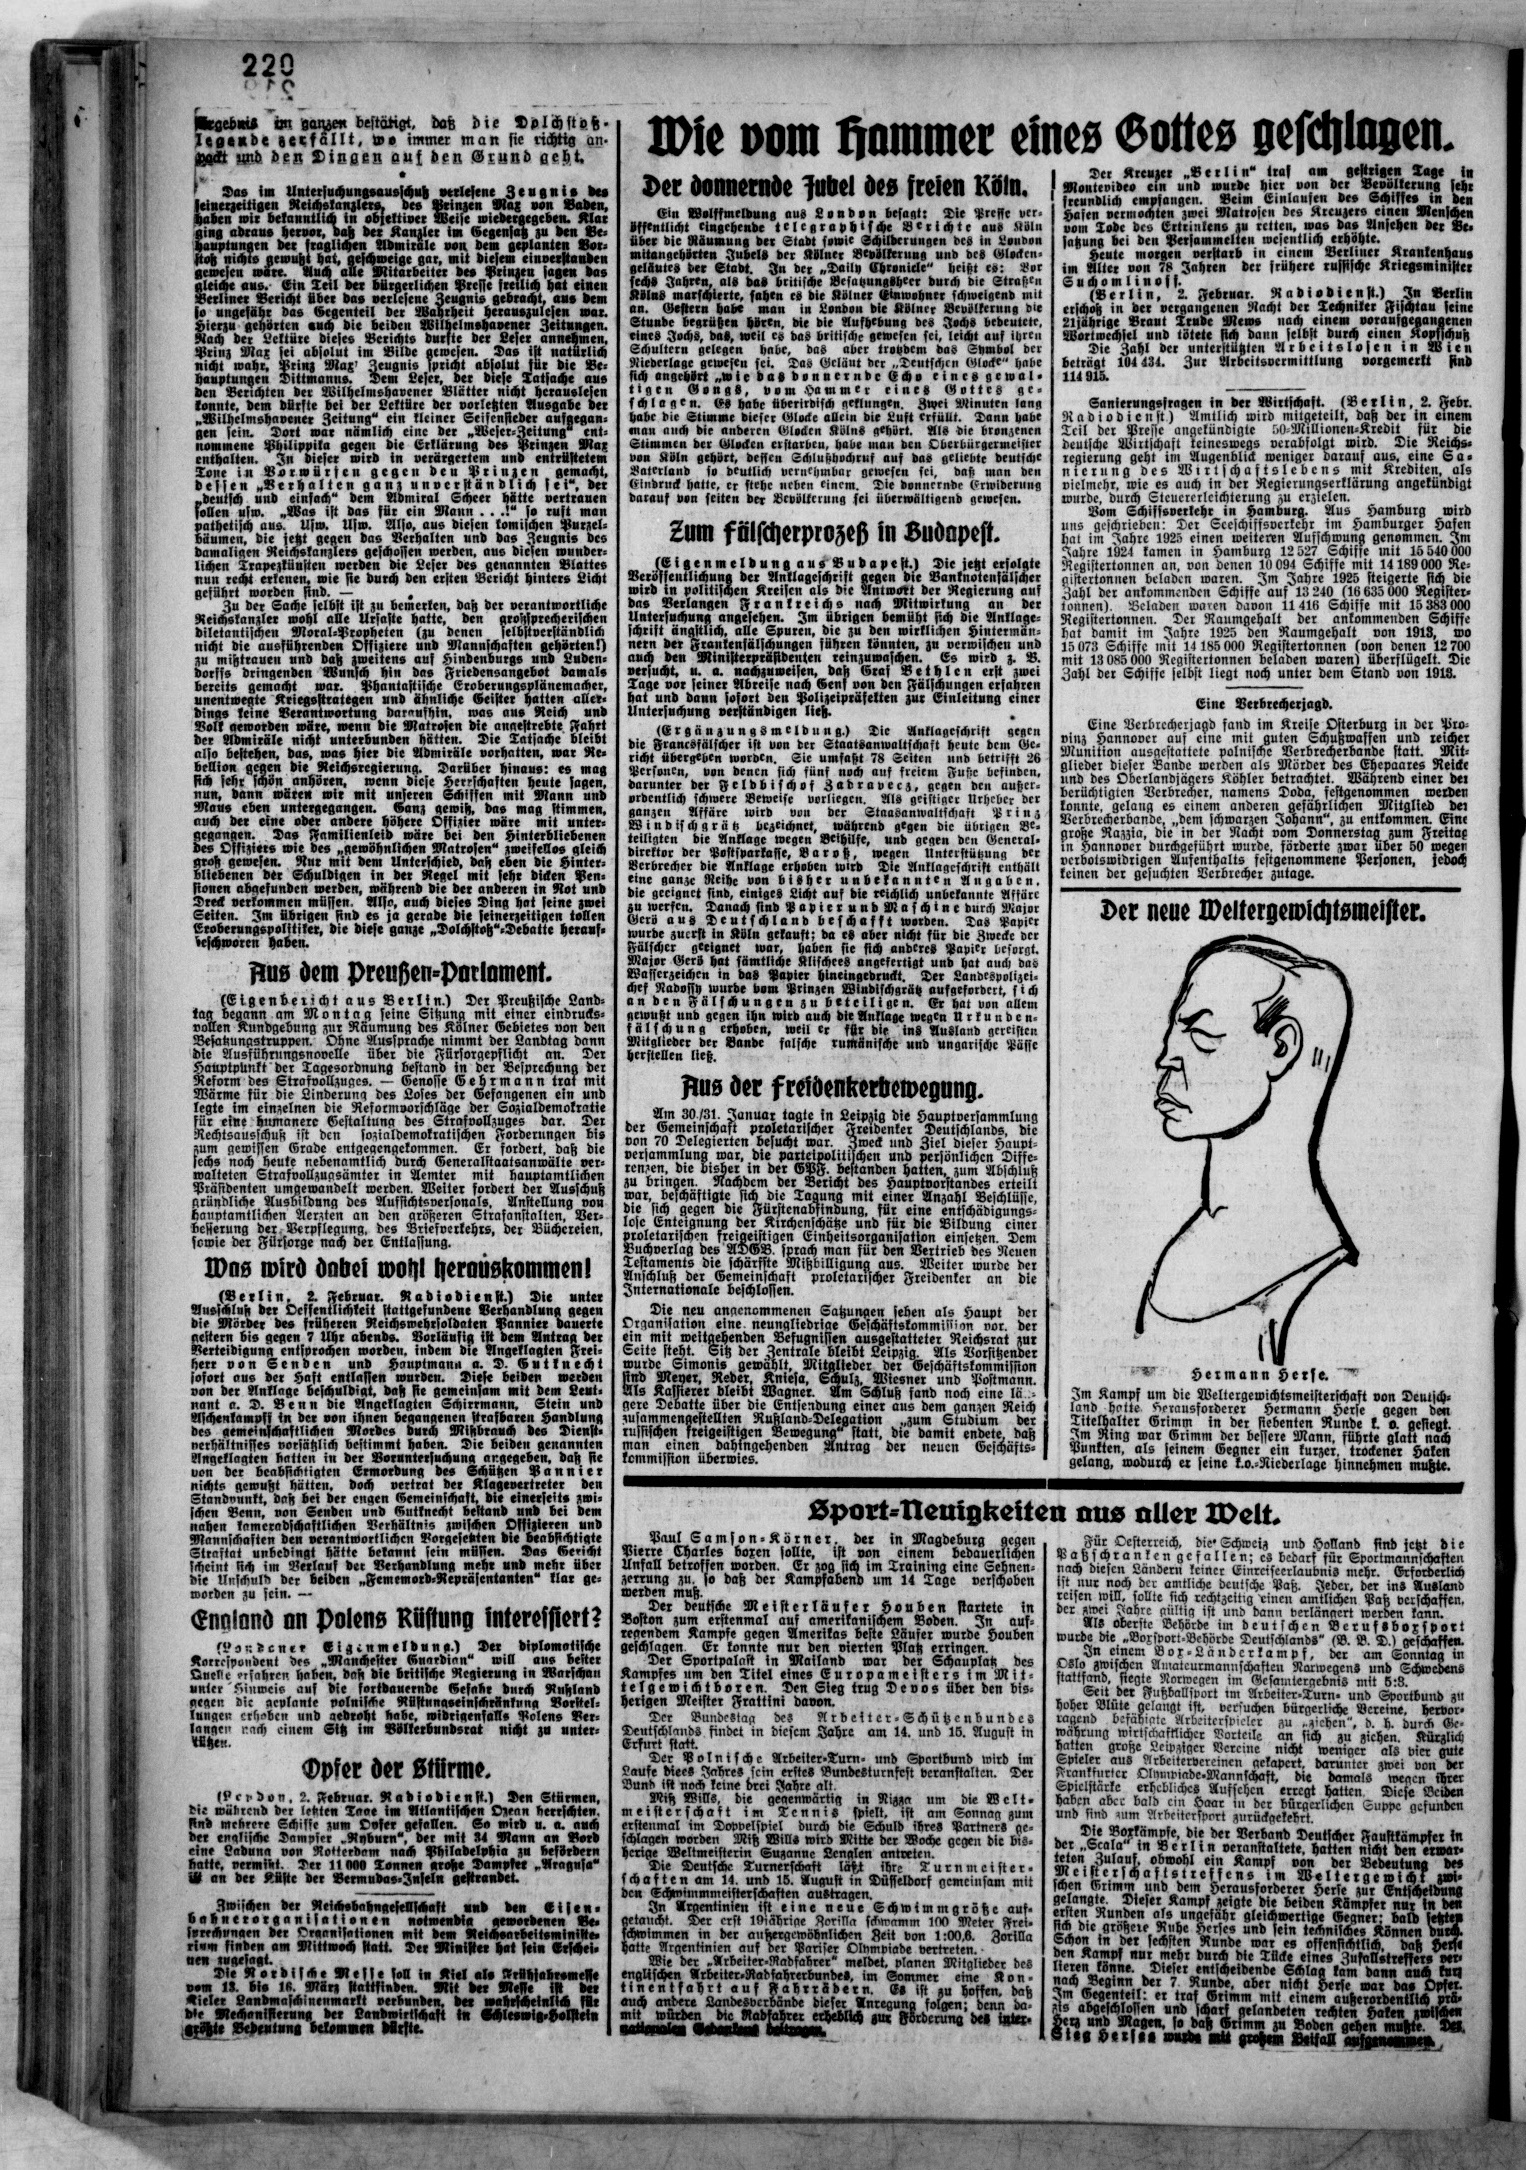 220
Ergebnis im ganzen bestätigt, daß die Dolchstoß-
legende zerfällt, wo immer man sie richtig an-
packt und den Dingen auf den Grund geht.
*
Das im Untersuchungsausschuß verlesene Zeugnis des
seinerzeitigen Reichskanzlers, des Prinzen Max von Baden,
haben wir bekanntlich in objektiver Weise wiedergegeben. Klar
ging daraus hervor, daß der Kanzler im Gegensatz zu den Be-
hauptungen der fraglichen Admiräle von dem geplanten Vor-
stoß nichts gewußt hat, geschweige gar, mit diesem einverstanden
gewesen wäre. Auch alle Mitarbeiter des Prinzen sagen das
gleiche aus. Ein Teil der bürgerlichen Presse freilich hat einen
Berliner Bericht über das verlesene Zeugnis gebracht, aus dem
so ungefähr das Gegenteil der Wahrheit herauszulesen war.
Hierzu gehörten auch die beiden Wilhelmshavener Zeitungen.
Nach der Lektüre dieses Berichts durfte der Leser annehmen,
Prinz Max sei absolut im Bilde gewesen. Das ist natürlich
nicht wahr, Prinz Max' Zeugnis spricht absolut für die Be-
hauptungen Dittmanns. Dem Leser, der diese Tatsache aus
den Berichten der Wilhelmshavener Blätter nicht herauslesen
konnte, dem dürfte bei der Lektüre der vorletzten Ausgabe der
„Wilhelmshavener Zeitung“ ein kleiner Seifensieder aufgegan-
gen sein. Dort war nämlich eine der „Weser-Zeitung“ ent-
nommene Philippika gegen die Erklärung des Prinzen Max
enthalten. In dieser wird in verärgertem und entrüstetem
Tone in Vorwürfen gegen den Prinzen gemacht,
dessen „Verhalten ganz unverständlich sei“, der
„deutsch und einfach“ dem Admiral Scheer hätte vertrauen
sollen usw. „Was ist das für ein Mann . . .!“ so ruft man
pathetisch aus. Usw. Usw. Also, aus diesen komischen Purzel-
bäumen, die jetzt gegen das Verhalten und das Zeugnis des
damaligen Reichskanzlers geschossen werden, aus diesen wunder-
lichen Trapezkünsten werden die Leser des genannten Blattes
nun recht erkenen, wie sie durch den ersten Bericht hinters Licht
geführt worden sind. —
Zu der Sache selbst ist zu bemerken, daß der verantwortliche
Reichskanzler wohl alle Ursache hatte, den großsprecherischen
diletantischen Moral-Propheten (zu denen selbstverständlich
nicht die ausführenden Offiziere und Mannschaften gehörten!)
zu mißtrauen und daß zweitens auf Hindenburgs und Luden-
dorffs dringenden Wunsch hin das Friedensangebot damals
bereits gemacht war. Phantastische Eroberungsplänemacher,
unentwegte Kriegsstrategen und ähnliche Geister hatten aller-
dings keine Verantwortung daraufhin, was aus Reich und
Volk geworden wäre, wenn die Matrosen die angestrebte Fahrt
der Admiräle nicht unterbunden hätten. Die Tatsache bleibt
also bestehen, das, was hier die Admiräle vorhatten, war Re-
bellion gegen die Reichsregierung. Darüber hinaus: es mag
sich sehr schön anhören, wenn diese Herrschaften heute sagen,
nun, dann wären wir mit unseren Schiffen mit Mann und
Maus eben untergegangen. Ganz gewiß, das mag stimmen,
auch der eine oder andere höhere Offizier wäre mit unter-
gegangen. Das Familienleid wäre bei den Hinterbliebenen
des Offiziers wie des „gewöhnlichen Matrosen“ zweifellos gleich
groß gewesen. Nur mit dem Unterschied, daß eben die Hinter-
bliebenen der Schuldigen in der Regel mit sehr dicken Pen-
sionen abgefunden werden, während die der anderen in Not und
Dreck verkommen müssen. Also, auch dieses Ding hat seine zwei
Seiten. Im übrigen sind es ja gerade die seinerzeitigen tollen
Eroberungspolitiker, die diese ganze „Dolchstoß“-Debatte herauf-
beschworen haben.
Aus dem Preußen-Parlament.
(Eigenbericht aus Berlin.) Der Preußische Land-
tag begann am Montag seine Sitzung mit einer eindrucks-
vollen Kundgebung zur Räumung des Kölner Gebietes von den
Besatzungstruppen. Ohne Aussprache nimmt der Landtag dann
die Ausführungsnovelle über die Fürsorgepflicht an. Der
Hauptpunkt der Tagesordnung bestand in der Besprechung der
Reform des Strafvollzuges. — Genosse Gehrmann trat mit
Wärme für die Linderung des Loses der Gefangenen ein und
legte im einzelnen die Reformvorschläge der Sozialdemokratie
für eine humanere Gestaltung des Strafvollzuges dar. Der
Rechtsausschuß ist den sozialdemokratischen Forderungen bis
zum gewissen Grade entgegengekommen. Er fordert, daß die
sechs noch heute nebenamtlich durch Generalstaatsanwälte ver-
walteten Strafvollzugsämter in Aemter mit hauptamtlichen
Präsidenten umgewandelt werden. Weiter fordert der Ausschuß
gründliche Ausbildung des Aufsichtspersonals, Anstellung von
hauptamtlichen Aerzten an den größeren Strafanstalten, Ver-
besserung der Verpflegung, des Briefverkehrs, der Büchereien,
sowie der Fürsorge nach der Entlassung.
Was wird dabei wohl herauskommen!
(Berlin, 2. Februar. Radiodienst.) Die unter
Ausschluß der Oeffentlichkeit stattgefundene Verhandlung gegen
die Mörder des früheren Reichswehrsoldaten Pannier dauerte
gestern bis gegen 7 Uhr abends. Vorläufig ist dem Antrag der
Verteidigung entsprochen worden, indem die Angeklagten Frei-
herr von Senden und Hauptmann a. D. Gutknecht
sofort aus der Haft entlassen wurden. Diese beiden werden
von der Anklage beschuldigt, daß sie gemeinsam mit dem Leut-
nant a. D. Benn die Angeklagten Schirrmann, Stein und
Aschenkampff in der von ihnen begangenen strafbaren Handlung
des gemeinschaftlichen Mordes durch Mißbrauch des Dienst-
verhältnisses vorsätzlich bestimmt haben. Die beiden genannten
Angeklagten hatten in der Voruntersuchung angegeben, daß sie
von der beabsichtigten Ermordung des Schützen Pannier
nichts gewußt hätten, doch vertrat der Klagevertreter den
Standpunkt, daß bei der engen Gemeinschaft, die einerseits zwi-
schen Benn, von Senden und Gutknecht bestand und bei dem
nahen kameradschaftlichen Verhältnis zwischen Offizieren und
Mannschaften den verantwortlichen Vorgesetzten die beabsichtigte
Straftat unbedingt hätte bekannt sein müssen. Das Gericht
scheint sich im Verlauf der Verhandlung mehr und mehr über
die Unschuld der beiden „Fememord-Repräsentanten“ klar ge-
worden zu sein. —
England an Polens Rüstung interessiert?
(Londoner Eigenmeldung.) Der diplomatische
Korrespondent des „Manchester Guardian“ will aus bester
Quelle erfahren haben, daß die britische Regierung in Warschau
unter Hinweis auf die fortdauernde Gefahr durch Rußland
gegen die geplante polnische Rüstungseinschränkung Vorstel-
lungen erhoben und gedroht habe, widrigenfalls Polens Ver-
langen nach einem Sitz im Völkerbundsrat nicht zu unter-
stützen.
Opfer der Stürme.
(London, 2. Februar. Radiodienst.) Den Stürmen,
die während der letzten Tage im Atlantischen Ozean herrschten,
sind mehrere Schiffe zum Opfer gefallen. So wird u. a. auch
der englische Dampfer „Ryburn“, der mit 34 Mann an Bord
eine Ladung von Rotterdam nach Philadelphia zu befördern
hatte, vermißt. Der 11 000 Tonnen große Dampfer „Aragusa“
ist an der Küste der Bermudas-Inseln gestrandet.
Zwischen der Reichsbahngesellschaft und den Eisen-
bahnerorganisationen notwendig gewordenen Be-
sprechungen der Organisationen mit dem Reichsarbeitsministe-
rium finden am Mittwoch statt. Der Minister hat sein Erschei-
nen zugesagt.
Die Nordische Messe soll in Kiel als Frühjahrsmesse
vom 13. bis 16. März stattfinden. Mit der Messe ist der
Kieler Landmaschinenmarkt verbunden, der wahrscheinlich für
die Mechanisierung der Landwirtschaft in Schleswig-Holstein
größte Bedeutung bekommen dürfte.
Wie vom Hammer eines Gottes geschlagen.
Der donnernde Jubel des freien Köln.
Ein Wolffmeldung aus London besagt: Die Presse ver-
öffentlicht eingehende telegraphische Berichte aus Köln
über die Räumung der Stadt sowie Schilderungen des in London
mitangehörten Jubels der Kölner Bevölkerung und des Glocken-
geläutes der Stadt. In der „Daily Chronicle“ heißt es: Vor
sechs Jahren, als das britische Besatzungsheer durch die Straßen
Kölns marschierte, sahen es die Kölner Einwohner schweigend mit
an. Gestern habe man in London die Kölner Bevölkerung die
Stunde begrüßen hören, die die Aufhebung des Jochs bedeutete,
eines Jochs, das, weil es das britische gewesen sei, leicht auf ihren
Schultern gelegen habe, das aber trotzdem das Symbol der
Niederlage gewesen sei. Das Geläut der „Deutschen Glocke“ habe
sich angehört „wie das donnernde Echo eines gewal-
tigen Gongs, vom Hammer eines Gottes ge-
schlagen. Es habe überirdisch geklungen. Zwei Minuten lang
habe die Stimme dieser Glocke allein die Luft erfüllt. Dann habe
man auch die anderen Glocken Kölns gehört. Als die bronzenen
Stimmen der Glocken erstarben, habe man den Oberbürgermeister
von Köln gehört, dessen Schlußhochruf auf das geliebte deutsche
Vaterland so deutlich vernehmbar gewesen sei, daß man den
Eindruck hatte, er stehe neben einem. Die donnernde Erwiderung
darauf von seiten der Bevölkerung sei überwältigend gewesen.
Zum Fälscherprozeß in Budapest.
(Eigenmeldung aus Budapest.) Die jetzt erfolgte
Veröffentlichung der Anklageschrift gegen die Banknotenfälscher
wird in politischen Kreisen als die Antwort der Regierung auf
das Verlangen Frankreichs nach Mitwirkung an der
Untersuchung angesehen. Im übrigen bemüht sich die Anklage-
schrift ängstlich, alle Spuren, die zu den wirklichen Hintermän-
nern der Frankenfälschungen führen könnten, zu verwischen und
auch den Ministerpräsidenten reinzuwaschen. Es wird z. B.
versucht, u. a. nachzuweisen, daß Graf Bethlen erst zwei
Tage vor seiner Abreise nach Genf von den Fälschungen erfahren
hat und dann sofort den Polizeipräfekten zur Einleitung einer
Untersuchung verständigen ließ.
(Ergänzungsmeldung.) Die Anklageschrift gegen
die Francsfälscher ist von der Staatsanwaltschaft heute dem Ge-
richt übergeben worden. Sie umfaßt 78 Seiten und betrifft 26
Personen, von denen sich fünf noch auf freiem Fuße befinden,
darunter der Feldbischof Zadravecz, gegen den außer-
ordentlich schwere Beweise vorliegen. Als geistiger Urheber der
ganzen Affäre wird von der Staasanwaltschaft Prinz
Windischgrätz bezeichnet, während gegen die übrigen Be-
teiligten die Anklage wegen Beihilfe, und gegen den General-
direktor der Postsparkasse, Baroß, wegen Unterstützung der
Verbrecher die Anklage erhoben wird Die Anklageschrift enthält
eine ganze Reihe von bisher unbekannten Angaben,
die geeignet sind, einiges Licht auf die reichlich unbekannte Affäre
zu werfen. Danach sind Papier und Maschine durch Major
Gerö aus Deutschland beschafft worden. Das Papier
wurde zuerst in Köln gekauft; da es aber nicht für die Zwecke der
Fälscher geeignet war, haben sie sich anderes Papier besorgt.
Major Gerö hat sämtliche Klischees angefertigt und hat auch das
Wasserzeichen in das Papier hineingedruckt. Der Landespolizei-
chef Nadossy wurde vom Prinzen Windischgrätz aufgefordert, sich
an den Fälschungen zu beteiligen. Er hat von allem
gewußt und gegen ihn wird auch die Anklage wegen Urkunden-
fälschung erhoben, weil er für die ins Ausland gereisten
Mitglieder der Bande falsche rumänische und ungarische Pässe
herstellen ließ.
Aus der Freidenkerbewegung.
Am 30./31. Januar tagte in Leipzig die Hauptversammlung
der Gemeinschaft proletarischer Freidenker Deutschlands, die
von 70 Delegierten besucht war. Zweck und Ziel dieser Haupt-
versammlung war, die parteipolitischen und persönlichen Diffe-
renzen, die bisher in der GPF. bestanden hatten, zum Abschluß
zu bringen. Nachdem der Bericht des Hauptvorstandes erteilt
war, beschäftigte sich die Tagung mit einer Anzahl Beschlüsse,
die sich gegen die Fürstenabfindung, für eine entschädigungs-
lose Enteignung der Kirchenschätze und für die Bildung einer
proletarischen freigeistigen Einheitsorganisation einsetzen. Dem
Buchverlag des ADGB. sprach man für den Vertrieb des Neuen
Testaments die schärfste Mißbilligung aus. Weiter wurde der
Anschluß der Gemeinschaft proletarischer Freidenker an die
Internationale beschlossen.
Die neu angenommenen Satzungen sehen als Haupt der
Organisation eine neungliedrige Geschäftskommission vor, der
ein mit weitgehenden Befugnissen ausgestatteter Reichsrat zur
Seite steht. Sitz der Zentrale bleibt Leipzig. Als Vorsitzender
wurde Simonis gewählt, Mitglieder der Geschäftskommission
sind Meyer, Reder, Kniesa, Schulz, Wiesner und Postmann.
Als Kassierer bleibt Wagner. Am Schluß fand noch eine län-
gere Debatte über die Entsendung einer aus dem ganzen Reich
zusammengestellten Rußland-Delegation „zum Studium der
russischen freigeistigen Bewegung“ statt, die damit endete, daß
man einen dahingehenden Antrag der neuen Geschäfts-
kommission überwies.
Der Kreuzer „Berlin“ traf am gestrigen Tage in
Montevideo ein und wurde hier von der Bevölkerung sehr
freundlich empfangen. Beim Einlaufen des Schiffes in den
Hafen vermochten zwei Matrosen des Kreuzers einen Menschen
vom Tode des Ertrinkens zu retten, was das Ansehen der Be-
satzung bei den Versammelten wesentlich erhöhte.
Heute morgen verstarb in einem Berliner Krankenhaus
im Alter von 78 Jahren der frühere russische Kriegsminister
Suchomlinoff.
(Berlin, 2. Februar. Radiodienst.) In Berlin
erschoß in der vergangenen Nacht der Techniker Fischtau seine
21jährige Braut Trude Mews nach einem vorausgegangenen
Wortwechsel und tötete sich dann selbst durch einen Kopfschuß
Die Zahl der unterstützten Arbeitslosen in Wien
beträgt 104 434. Zur Arbeitsvermittlung vorgemerkt sind
114 915.
Sanierungsfragen in der Wirtschaft. (Berlin, 2. Febr.
Radiodienst.) Amtlich wird mitgeteilt, daß der in einem
Teil der Presse angekündigte 50-Millionen-Kredit für die
deutsche Wirtschaft keineswegs verabfolgt wird. Die Reichs-
regierung geht im Augenblick weniger darauf aus, eine Sa-
nierung des Wirtschaftslebens mit Krediten, als
vielmehr, wie es auch in der Regierungserklärung angekündigt
wurde, durch Steuererleichterung zu erzielen.
Vom Schiffsverkehr in Hamburg. Aus Hamburg wird
uns geschrieben: Der Seeschiffsverkehr im Hamburger Hafen
hat im Jahre 1925 einen weiteren Aufschwung genommen. Im
Jahre 1924 kamen in Hamburg 12 527 Schiffe mit 15 540 000
Registertonnen an, von denen 10 094 Schiffe mit 14 189 000 Re-
gistertonnen beladen waren. Im Jahre 1925 steigerte sich die
Zahl der ankommenden Schiffe auf 13 240 (16 635 000 Register-
tonnen). Beladen waren davon 11 416 Schiffe mit 15 383 000
Registertonnen. Der Raumgehalt der ankommenden Schiffe
hat damit im Jahre 1925 den Raumgehalt von 1913, wo
15 073 Schiffe mit 14 185 000 Registertonnen (von denen 12 700
mit 13 085 000 Registertonnen beladen waren) überflügelt. Die
Zahl der Schiffe selbst liegt noch unter dem Stand von 1913.
Eine Verbrecherjagd.
Eine Verbrecherjagd fand im Kreise Osterburg in der Pro-
vinz Hannover auf eine mit guten Schußwaffen und reicher
Munition ausgestattete polnische Verbrecherbande statt. Mit-
glieder dieser Bande werden als Mörder des Ehepaares Reicke
und des Oberlandjägers Köhler betrachtet. Während einer der
berüchtigten Verbrecher, namens Doda, festgenommen werden
konnte, gelang es einem anderen gefährlichen Mitglied der
Verbrecherbande, „dem schwarzen Johann“, zu entkommen. Eine
große Razzia, die in der Nacht vom Donnerstag zum Freitag
in Hannover durchgeführt wurde, förderte zwar über 50 wegen
verbotswidrigen Aufenthalts festgenommene Personen, jedoch
keinen der gesuchten Verbrecher zutage.
Der neue Weltergewichtsmeister.
Hermann Herse.
Im Kampf um die Weltergewichtsmeisterschaft von Deutsch-
land hatte Herausforderer Hermann Herse gegen den
Titelhalter Grimm in der siebenten Runde k. o. gesiegt.
Im Ring war Grimm der bessere Mann, führte glatt nach
Punkten, als seinem Gegner ein kurzer, trockener Haken
gelang, wodurch er seine k.o.-Niederlage hinnehmen mußte.
Sport-Neuigkeiten aus aller Welt.
Paul Samson-Körner, der in Magdeburg gegen
Pierre Charles boxen sollte, ist von einem bedauerlichen
Unfall betroffen worden. Er zog sich im Training eine Sehnen-
zerrung zu, so daß der Kampfabend um 14 Tage verschoben
werden muß.
Der deutsche Meisterläufer Houben startete in
Boston zum erstenmal auf amerikanischem Boden. In auf-
regendem Kampfe gegen Amerikas beste Läufer wurde Houben
geschlagen. Er konnte nur den vierten Platz erringen.
Der Sportpalast in Mailand war der Schauplatz des
Kampfes um den Titel eines Europameisters im Mit-
telgewichtboxen. Den Sieg trug Devos über den bis-
herigen Meister Frattini davon.
Der Bundestag des Arbeiter-Schützenbundes
Deutschlands findet in diesem Jahre am 14. und 15. August in
Erfurt statt.
Der Polnische Arbeiter-Turn- und Sportbund wird im
Laufe dieses Jahres sein erstes Bundesturnfest veranstalten. Der
Bund ist noch keine drei Jahre alt.
Miß Wills, die gegenwärtig in Nizza um die Welt-
meisterschaft im Tennis spielt, ist am Sonnag zum
erstenmal im Doppelspiel durch die Schuld ihres Partners ge-
schlagen worden Miß Wills wird Mitte der Woche gegen die bis-
herige Weltmeisterin Suzanne Lenglen antreten.
Die Deutsche Turnerschaft läßt ihre Turnmeister-
schaften am 14. und 15. August in Düsseldorf gemeinsam mit
den Schwimmmeisterschaften austragen.
In Argentinien ist eine neue Schwimmgröße auf-
getaucht. Der erst 19jährige Zorilla schwamm 100 Meter Frei-
schwimmen in der außergewöhnlichen Zeit von 1:00,6. Zorilla
hatte Argentinien auf der Pariser Olympiade vertreten.
Wie der „Arbeiter-Radfahrer“ meldet, planen Mitglieder des
englischen Arbeiter-Radfahrerbundes, im Sommer eine Kon-
tinentfahrt auf Fahrrädern. Es ist zu hoffen, daß
auch andere Landesverbände dieser Anregung folgen; denn da-
mit würden die Radfahrer erheblich zur Förderung des inter-
nationalen Gedankens beitragen.
Für Oesterreich, die Schweiz und Holland sind jetzt die
Paßschranken gefallen; es bedarf für Sportmannschaften
nach diesen Ländern keiner Einreiseerlaubnis mehr. Erforderlich
ist nur noch der amtliche deutsche Paß. Jeder, der ins Ausland
reisen will, sollte sich rechtzeitig einen amtlichen Paß verschaffen,
der zwei Jahre gültig ist und dann verlängert werden kann.
Als oberste Behörde im deutschen Berufsboxsport
wurde die „Boxsport-Behörde Deutschlands“ (B. B. D.) geschaffen.
In einem Box-Länderkampf, der am Sonntag in
Oslo zwischen Amateurmannschaften Norwegens und Schwedens
stattfand, siegte Norwegen im Gesamtergebnis mit 5:3.
Seit der Fußballsport im Arbeiter-Turn- und Sportbund zu
hoher Blüte gelangt ist, versuchen bürgerliche Vereine, hervor-
ragend befähigte Arbeiterspieler zu „ziehen“, d. h. durch Ge-
währung wirtschaftlicher Vorteile an sich zu ziehen. Kürzlich
hatten große Leipziger Vereine nicht weniger als vier gute
Spieler aus Arbeitervereinen gekapert, darunter zwei von der
Frankfurter Olympiade-Mannschaft, die damals wegen ihrer
Spielstärke erhebliches Aufsehen erregt hatten. Diese Beiden
haben aber bald ein Haar in der bürgerlichen Suppe gefunden
und sind zum Arbeitersport zurückgekehrt.
Die Boxkämpfe, die der Verband Deutscher Faustkämpfer in
der „Scala“ in Berlin veranstaltete, hatten nicht den erwar-
teten Zulauf, obwohl ein Kampf von der Bedeutung des
Meisterschaftstreffens im Weltergewicht zwi-
schen Grimm und dem Herausforderer Herse zur Entscheidung
gelangte. Dieser Kampf zeigte die beiden Kämpfer nur in den
ersten Runden als ungefähr gleichwertige Gegner; bald setzten
sich die größere Ruhe Herses und sein technisches Können durch.
Schon in der sechsten Runde war es offensichtlich, daß Herse
den Kampf nur mehr durch die Tücke eines Zufallstreffers ver-
lieren könne. Dieser entscheidende Schlag kam dann auch kurz
nach Beginn der 7. Runde, aber nicht Herse war das Opfer.
Im Gegenteil: er traf Grimm mit einem außerordentlich prä-
zis abgeschlossen und scharf gelandeten rechten Haken zwischen
Herz und Magen, so daß Grimm zu Boden gehen mußte. Der
Sieg Herses wurde mit großem Beifall aufgenommen.